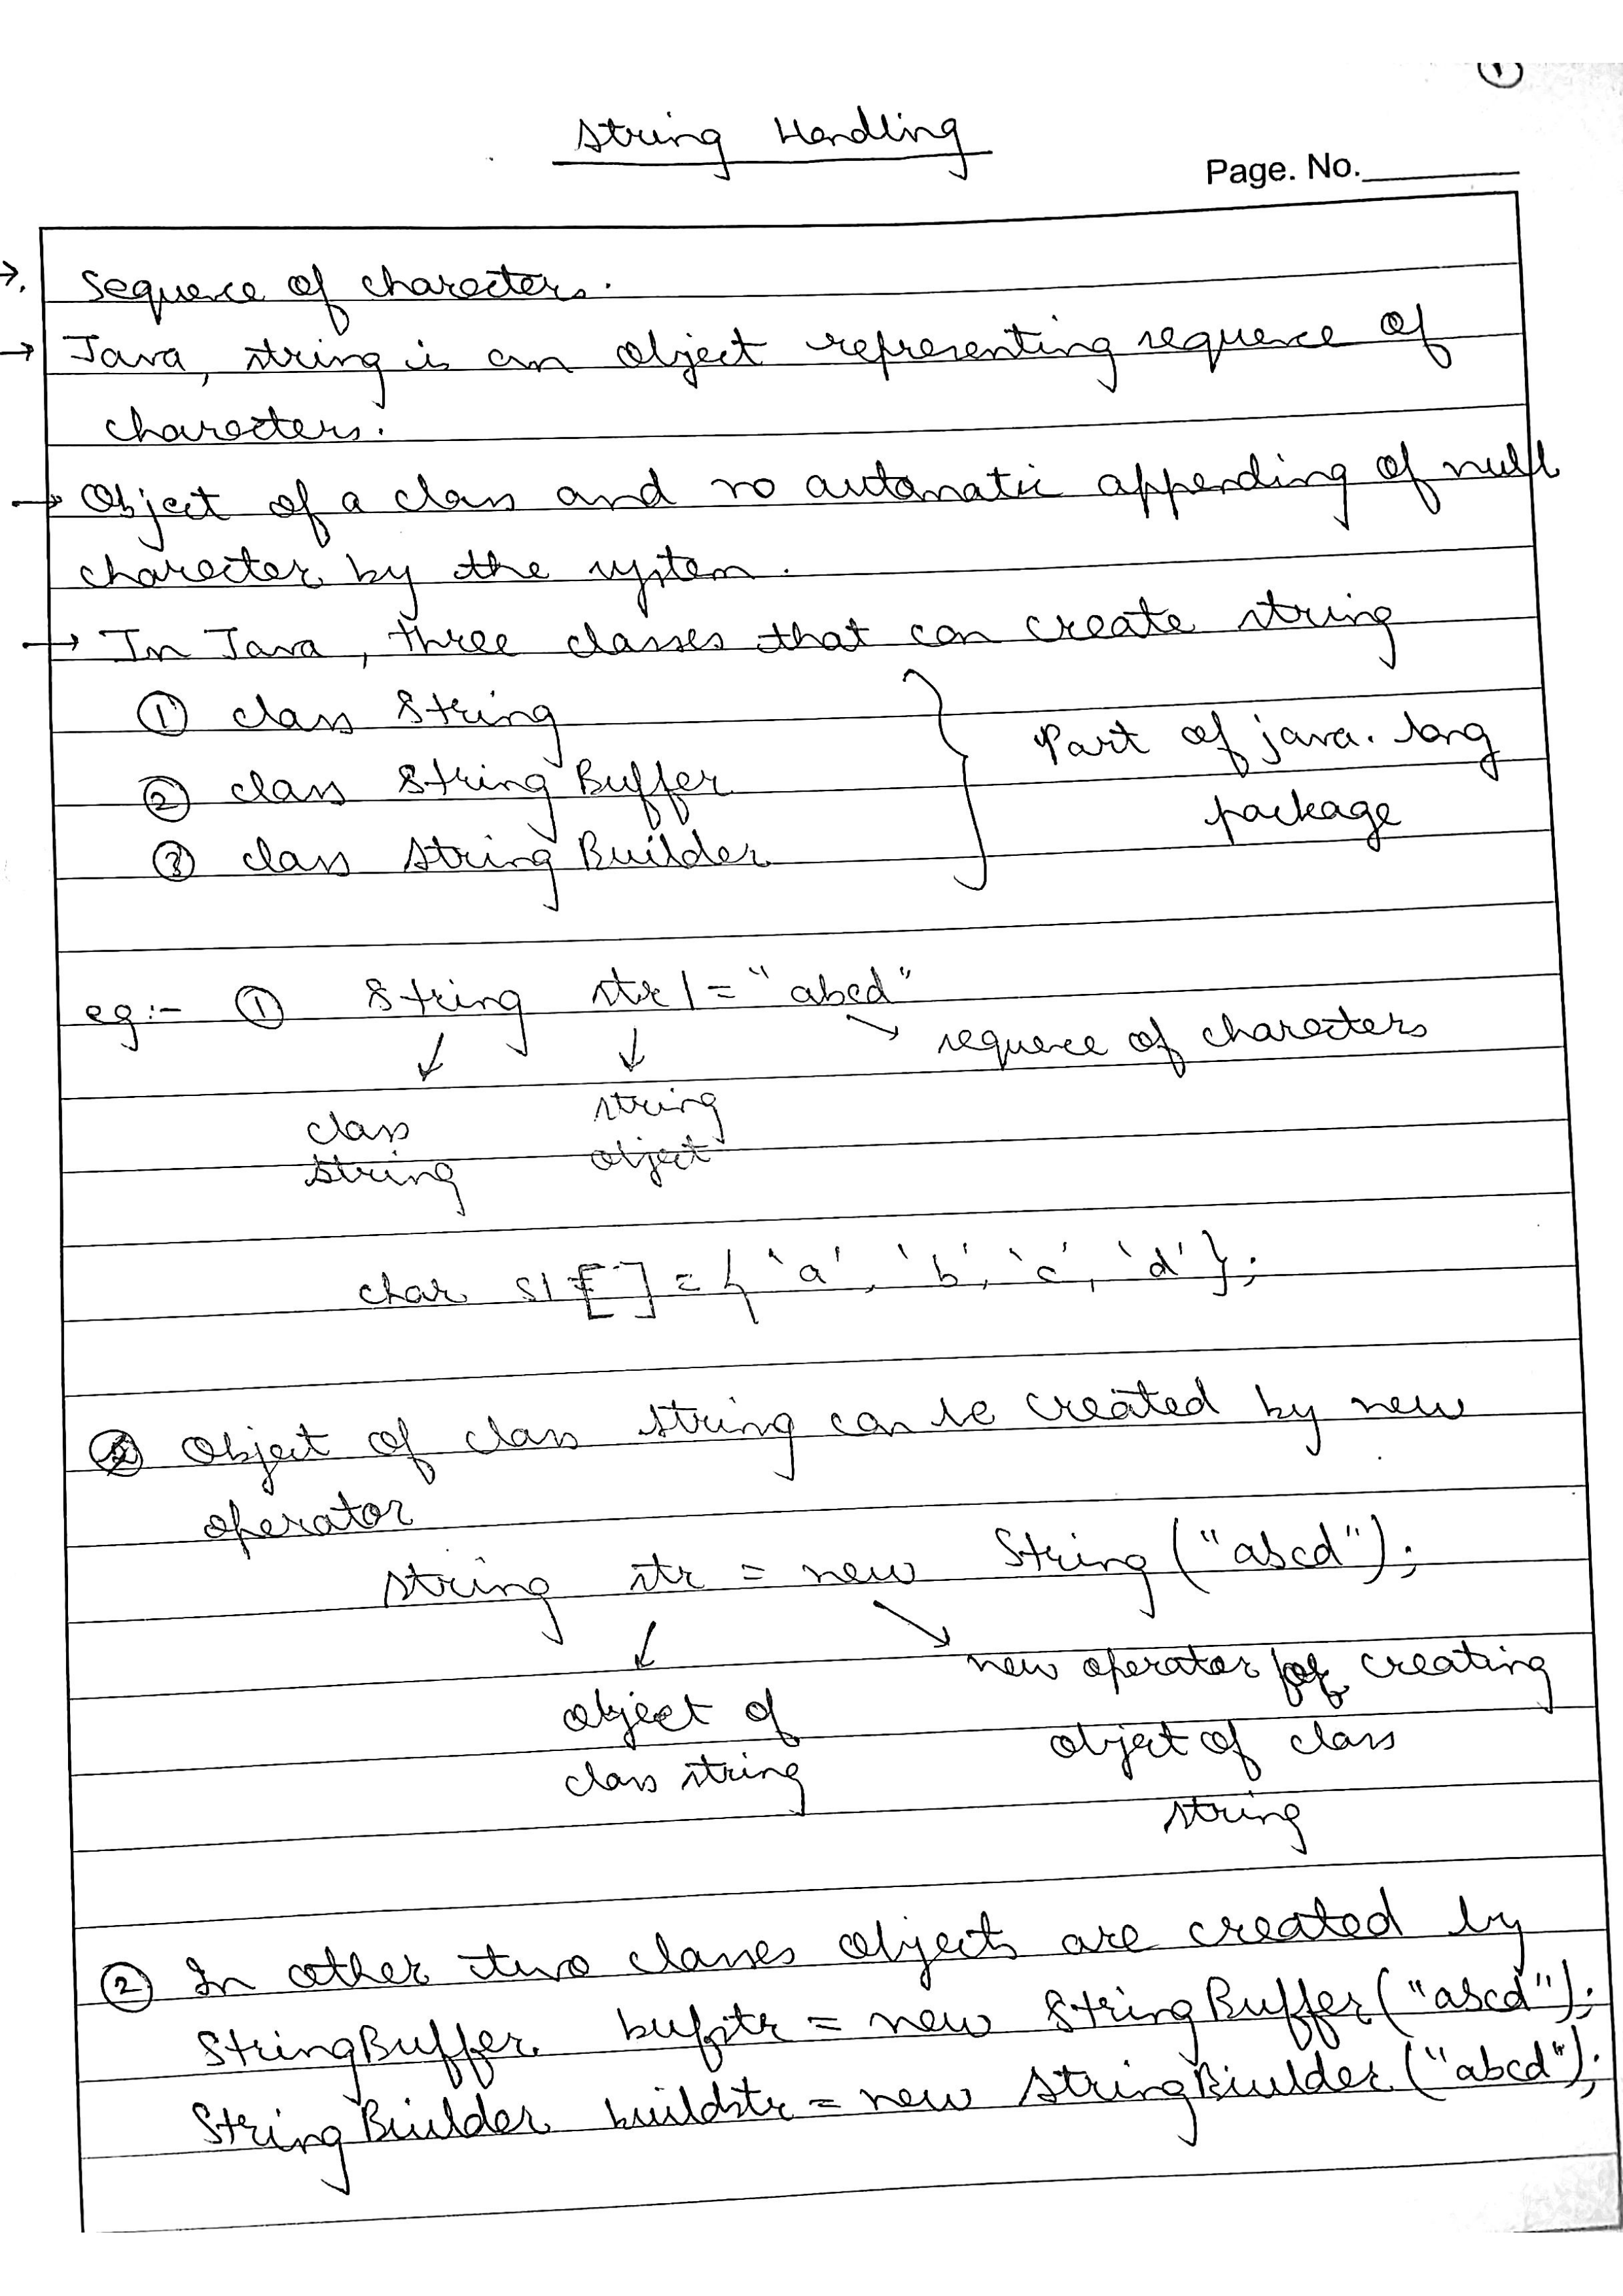 1
String Handling
Page. No.
→ Sequence of characters.
→ Java, string is an object representing sequence of
characters.
→ Object of a class and no automatic appending of null
character by the system.
→ In Java, three classes that can create string
① class String
② class StringBuffer
③ class StringBuilder
Part of java.lang
package
eg:- ① String str1 = "abcd"
sequence of characters
class
string
string
object
char s1[] = { 'a', 'b', 'c', 'd' };
Object of class string can be created by new
operator
string str = new String("abcd");
object of
class string
new operator for creating
object of class
string
② In other two classes objects are created by
StringBuffer bufstr = new StringBuffer("abcd");
StringBuilder buildstr = new StringBuilder("abcd");